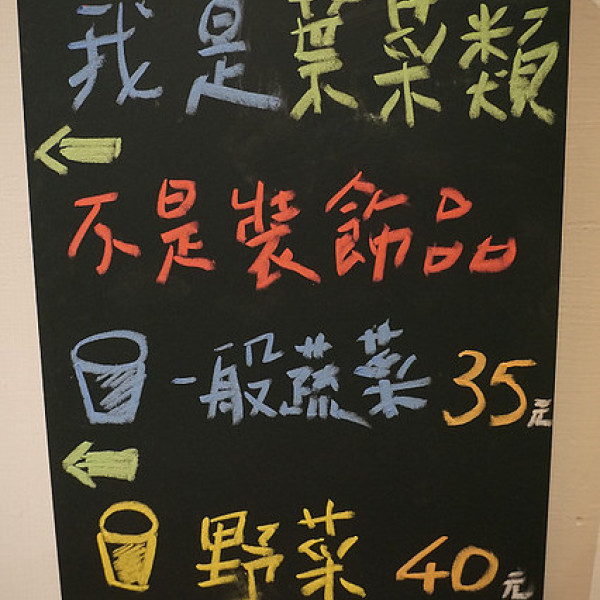 我是葉菜類
不是裝飾品
一般蔬菜 35元
野菜 40元